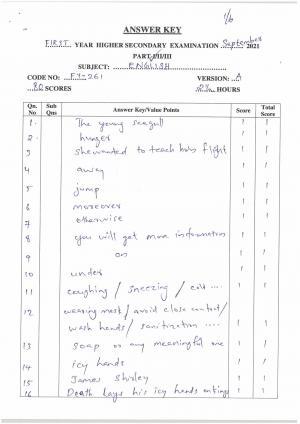 1/6
ANSWER KEY
FIRST YEAR HIGHER SECONDARY EXAMINATION September 2021
PART I/II/III
SUBJECT: ENGLISH
CODE NO: FY-261 VERSION: A
80 SCORES 2½ HOURS
Qn. No Sub Qns Answer Key/Value Points Score Total Score
1. The young seagull 1 1
2. hunger 1 1
3 She wanted to teach him flight 1 1
4 away 1 1
5 jump 1 1
6 moreover 1 1
7 otherwise 1 1
8 you will get more information 1 1
9 on 1 1
10 under 1 1
11 coughing / sneezing / cold .... 1 1
12 wearing mask / avoid close contact / 1 1
wash hands / sanitization ....
13 soap or any meaningful one 1 1
14 icy hands 1 1
15 James Shirley 1 1
16 Death lays his icy hands on kings 1 1